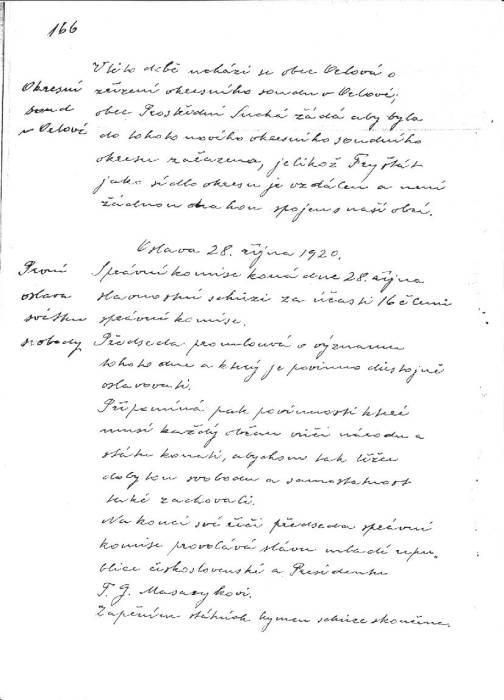 166
V této době uchází se obec Orlová o
Okresní
soud
v Orlové
zřízení okresního soudu v Orlové;
obec Prostřední Suchá žádá aby byla
do tohoto nového okresního soudního
okresu začazena, jelikož Fryštát
jako sídlo okresu je vzdálen a není
žádnou drahou spojen s naší obcí.
Oslava 28. října 1920.
První
oslava
svátku
svobody
Správní komise koná dne 28. října
slavnostní schůzi za účasti 16 členů
správní komise.
Předseda promlouvá o významu
tohoto dne a který je povinno důstojně
oslavovati.
Připomíná pak povinnosti které
musí každý občan vůči národu a
státu konati, abychom tak těžce
dobytou svobodu a samostatnost
také zachovali.
Na konci své řeči předseda správní
komise provolává slávu mladé repu-
blice československé a Presidentu
T. G. Masarykovi.
Zapěním státních hymen schůze skončena.